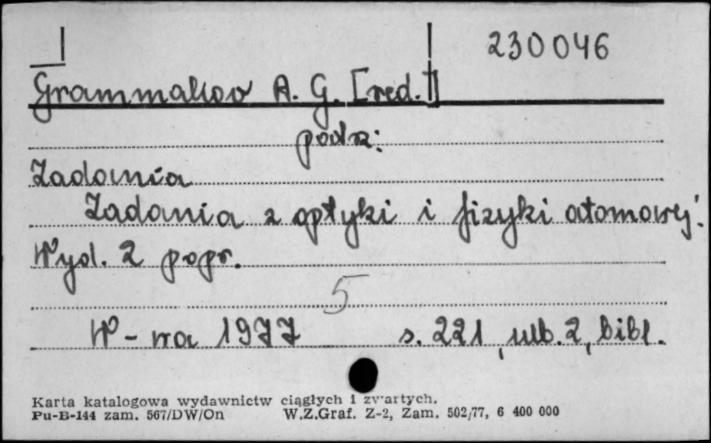 230046
Grammakow A. G. [red.]
podrz:
Zadania
Zadania z optyki i fizyki atomowej.
Wyd. 2 popr.
5
W-wa 1977 s. 221, nlb. 2, bibl.
Karta katalogowa wydawnictw ciągłych i zwartych.
Pu-B-144 zam. 567/DW/On W.Z.Graf. Z-2, Zam. 502/77, 6 400 000